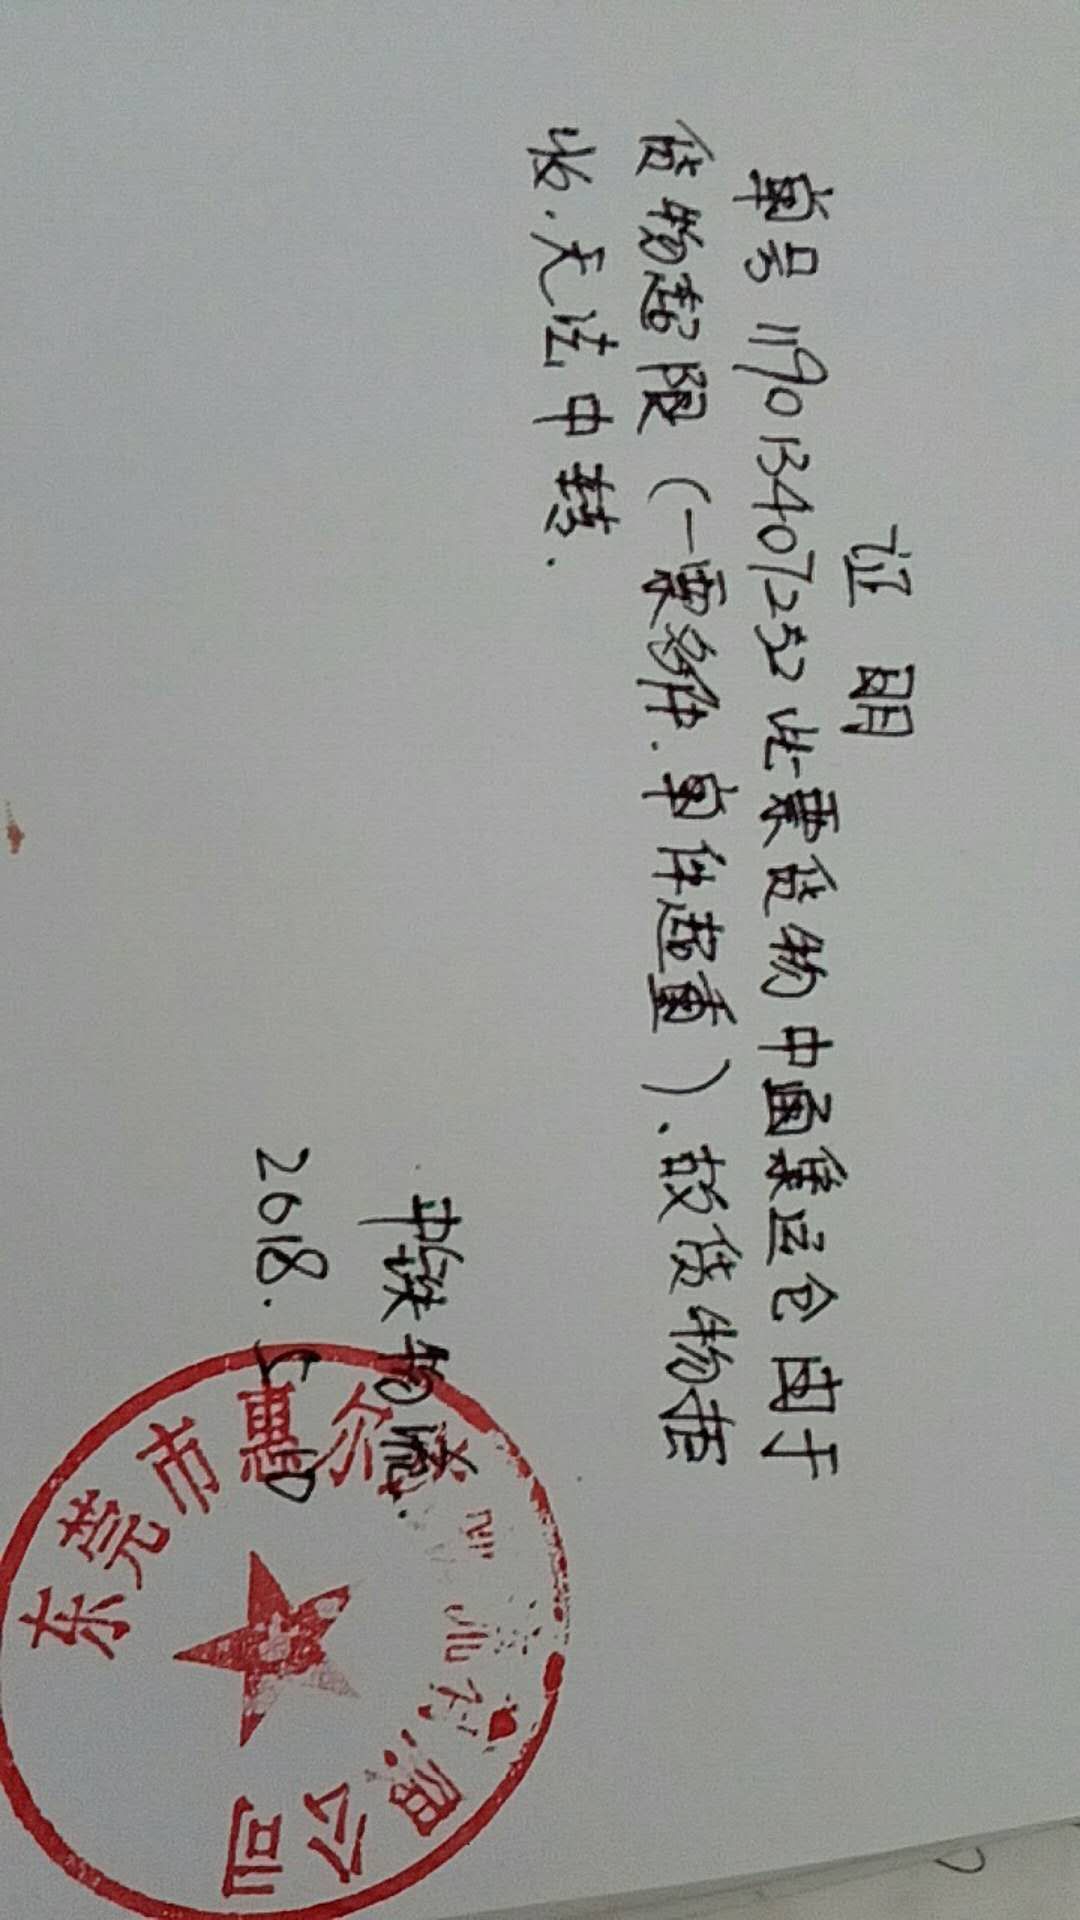 证明
单号119013407252此票货物中通集运仓因于
货物超限(一票多件.单件超重)、故货物拒
收.无法中转.
中铁物流.
2018.5.10
东莞市惠尔 有限公司